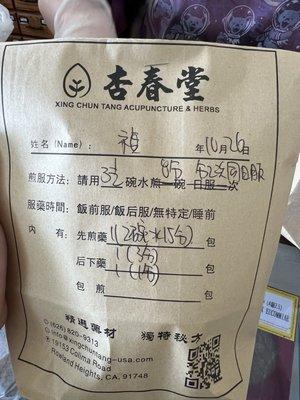 杏春堂
XING CHUN TANG ACUPUNCTURE & HERBS
姓名 (Name): 年10月26日
煎服方法: 請用3½碗水煎一碗 日服一次
服藥時間: 飯前服/飯后服/無特定/睡前
內 有: 先煎藥 包
后下藥 包
包 煎 包
精選藥材 獨特秘方
(626) 820-9313
info@xingchuntang-usa.com
19153 Colima Road
Rowland Heights, CA. 91748